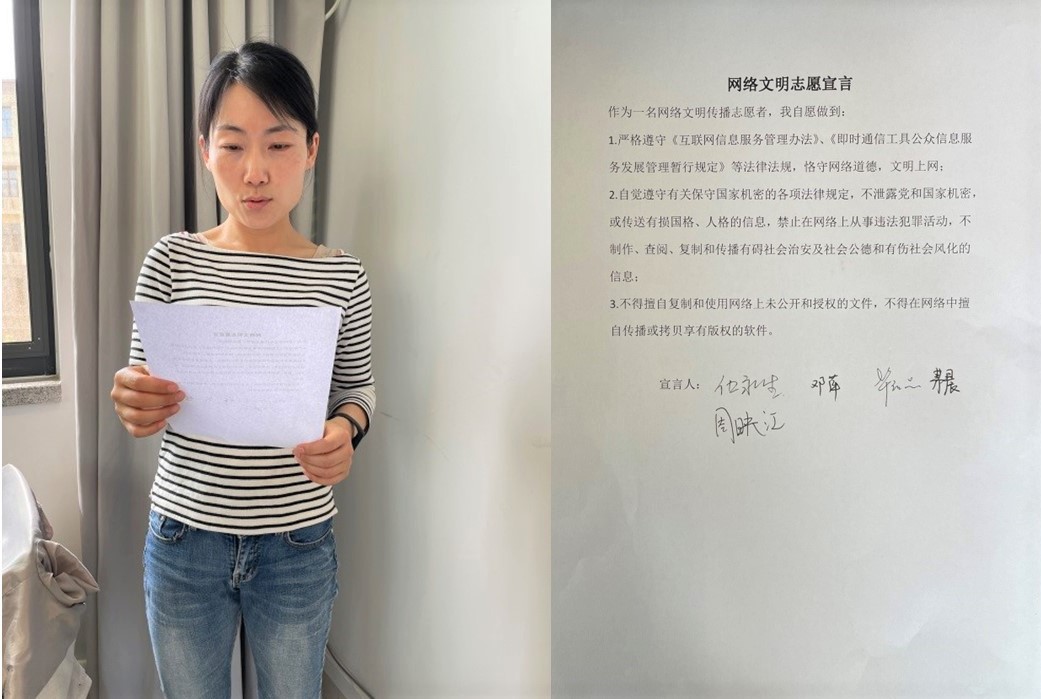 网络文明志愿宣言
作为一名网络文明传播志愿者，我自愿做到：
1.严格遵守《互联网信息服务管理办法》、《即时通信工具公众信息服
务发展管理暂行规定》等法律法规，恪守网络道德，文明上网；
2.自觉遵守有关保守国家机密的各项法律规定，不泄露党和国家机密，
或传送有损国格、人格的信息，禁止在网络上从事违法犯罪活动，不
制作、查阅、复制和传播有碍社会治安及社会公德和有伤社会风化的
信息；
3.不得擅自复制和使用网络上未公开和授权的文件，不得在网络中擅
自传播或拷贝享有版权的软件。
宣言人：
周映江